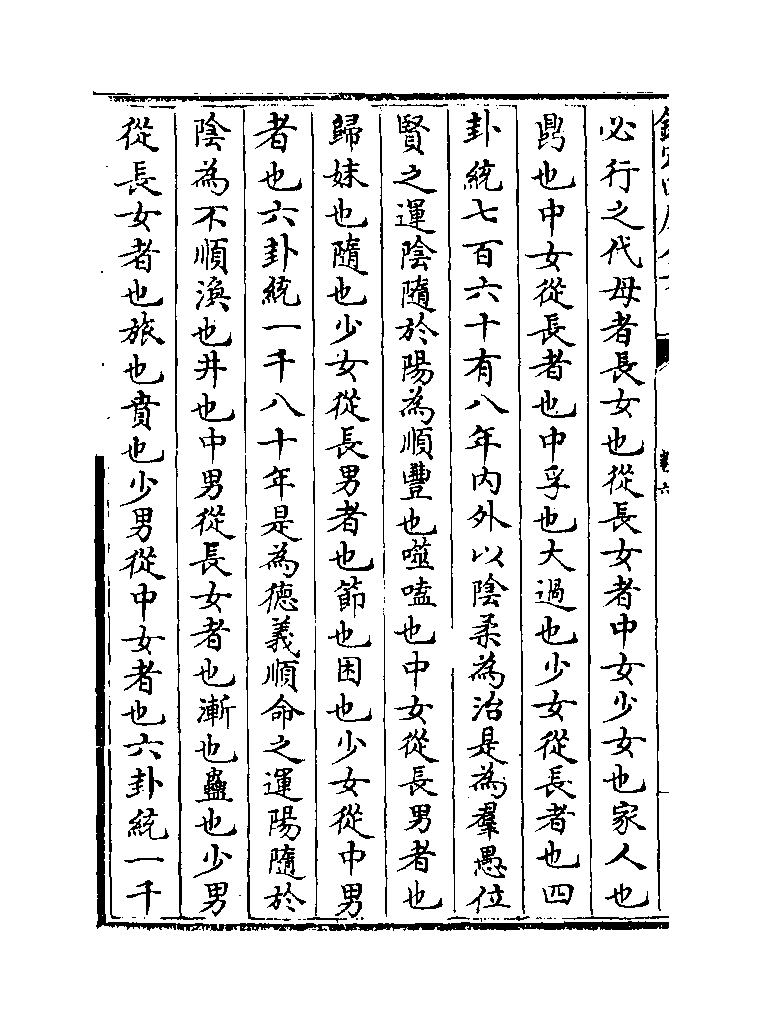 必行之代母者長女也從長女者中女少女也家人也
鼎也中女從長者也中孚也大過也少女從長者也四
卦統七百六十有八年內外以陰柔為治是為羣愚位
賢之運陰隨於陽為順豐也噬嗑也中女從長男者也
歸妹也隨也少女從長男者也節也困也少女從中男
者也六卦統一千八十年是為德義順命之運陽隨於
陰為不順渙也井也中男從長女者也漸也蠱也少男
從長女者也旅也賁也少男從中女者也六卦統一千